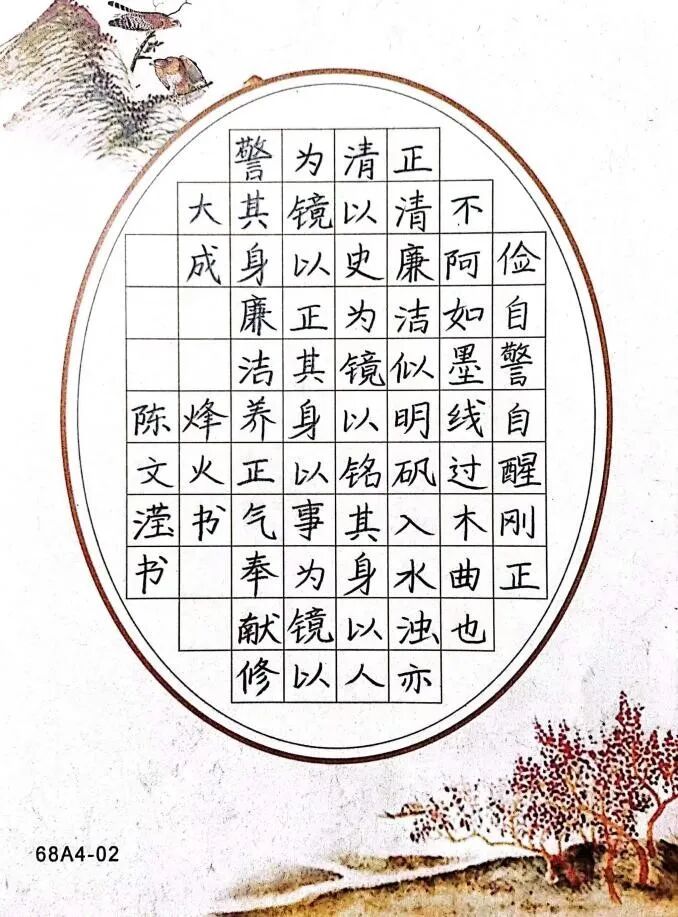 俭自警自醒刚正
不阿如墨线过木曲也
正清廉洁似明矾入水浊亦
清以史为镜以铭其身以人
为镜以正其身以事为镜以
警其身廉洁养正气奉献修
大成 烽火书
陈文滢书
68A4-02